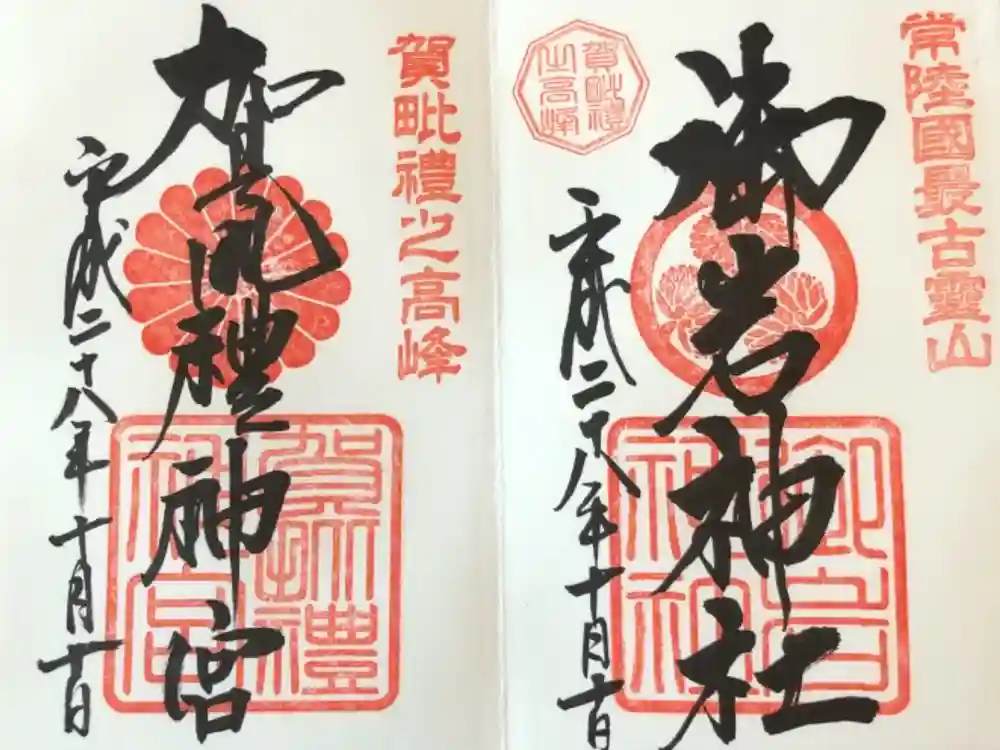 常陸國最古霊山
賀毗禮之高峰
御岩神社
御岩神社
平成二十八年十月十日
賀毗禮之高峰
賀毗禮神宮
賀毗禮神宮
平成二十八年十月十日